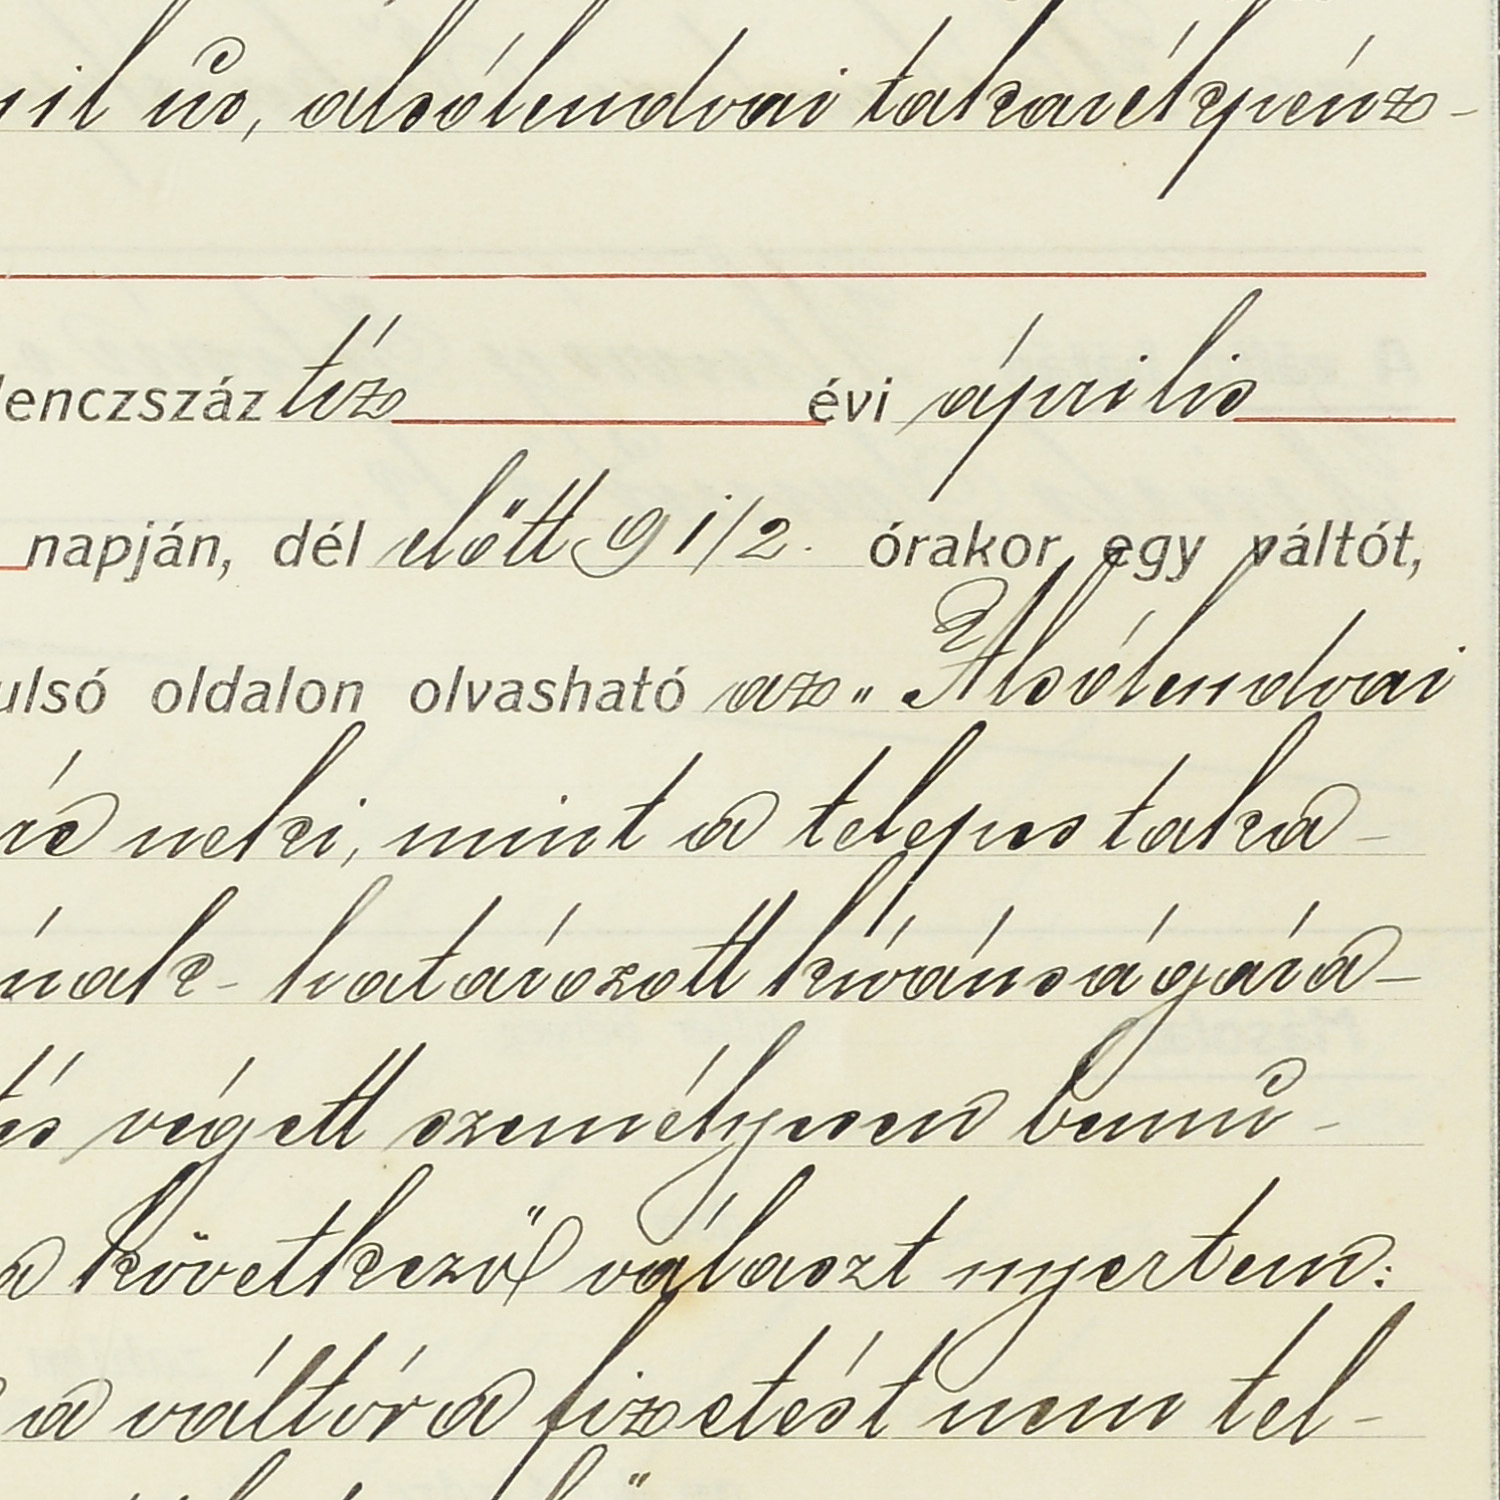 úr, alsólendvai takarékpénz-
lenczszáz tíz évi április
napján, dél előtt 9 1/2. órakor egy váltót,
ulsó oldalon olvasható az „Alsólendvai
neki, mint a telepes taka-
nak - határozott kívánságára -
végett személyesen bemu-
a következő választ nyertem:
a váltóra fizetést nem tel-